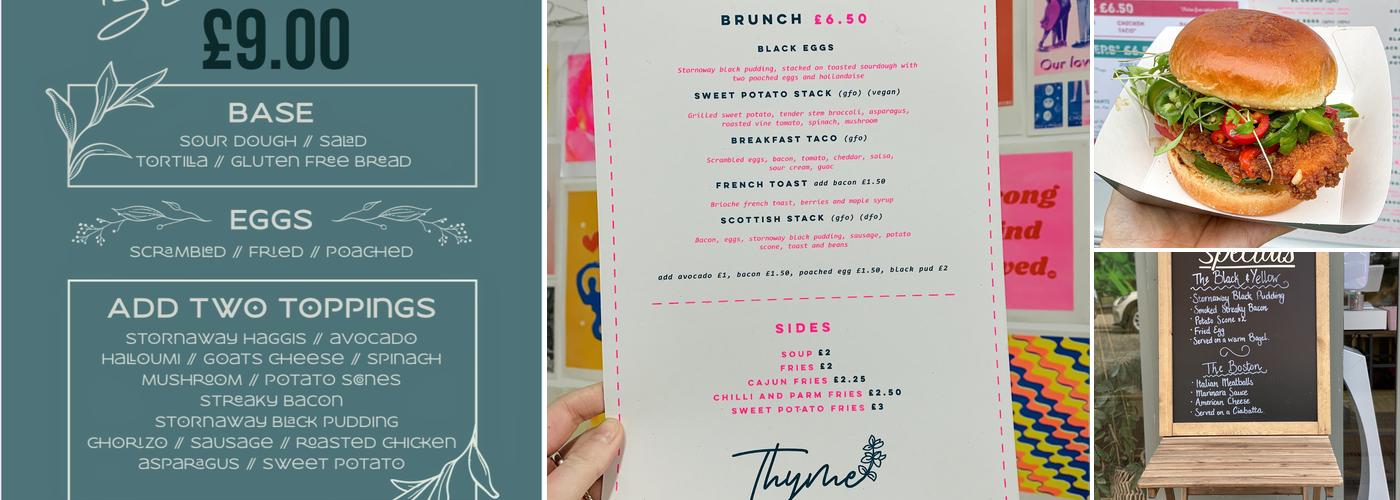 £9.00
BASE
SOUR DOUGH // SALAD
TORTILLA // GLUTEN FREE BREAD
EGGS
SCRAMBLED // FRIED // POACHED
ADD TWO TOPPINGS
STORNAWAY HAGGIS // AVOCADO
HALLOUMI // GOATS CHEESE // SPINACH
MUSHROOM // POTATO SCONES
STREAKY BACON
STORNAWAY BLACK PUDDING
CHORIZO // SAUSAGE // ROASTED CHICKEN
ASPARAGUS // SWEET POTATO
BRUNCH £6.50
BLACK EGGS
Stornoway black pudding, stacked on toasted sourdough with
two poached eggs and hollandaise
SWEET POTATO STACK (gfo) (vegan)
Grilled sweet potato, tender stem broccoli, asparagus,
roasted vine tomato, spinach, mushroom
BREAKFAST TACO (gfo)
Scrambled eggs, bacon, tomato, cheddar, salsa,
sour cream, guac
FRENCH TOAST add bacon £1.50
Brioche french toast, berries and maple syrup
SCOTTISH STACK (gfo) (dfo)
Bacon, eggs, stornoway black pudding, sausage, potato
scone, toast and beans
add avocado £1, bacon £1.50, poached egg £1.50, black pud £2
SIDES
SOUP £2
FRIES £2
CAJUN FRIES £2.25
CHILLI AND PARM FRIES £2.50
SWEET POTATO FRIES £3
Thyme
Our lov
ong
ind
ved.
£6.50
CHICKEN
TACO
Specials
The Black & Yellow
· Stornaway Black Pudding
· Smoked Streaky Bacon
· Potato Scone x2
· Fried Egg
· Served on a warm Bagel.
The Boston
· Italian Meatballs
· Marinara Sauce
· American Cheese
· Served on a Ciabatta